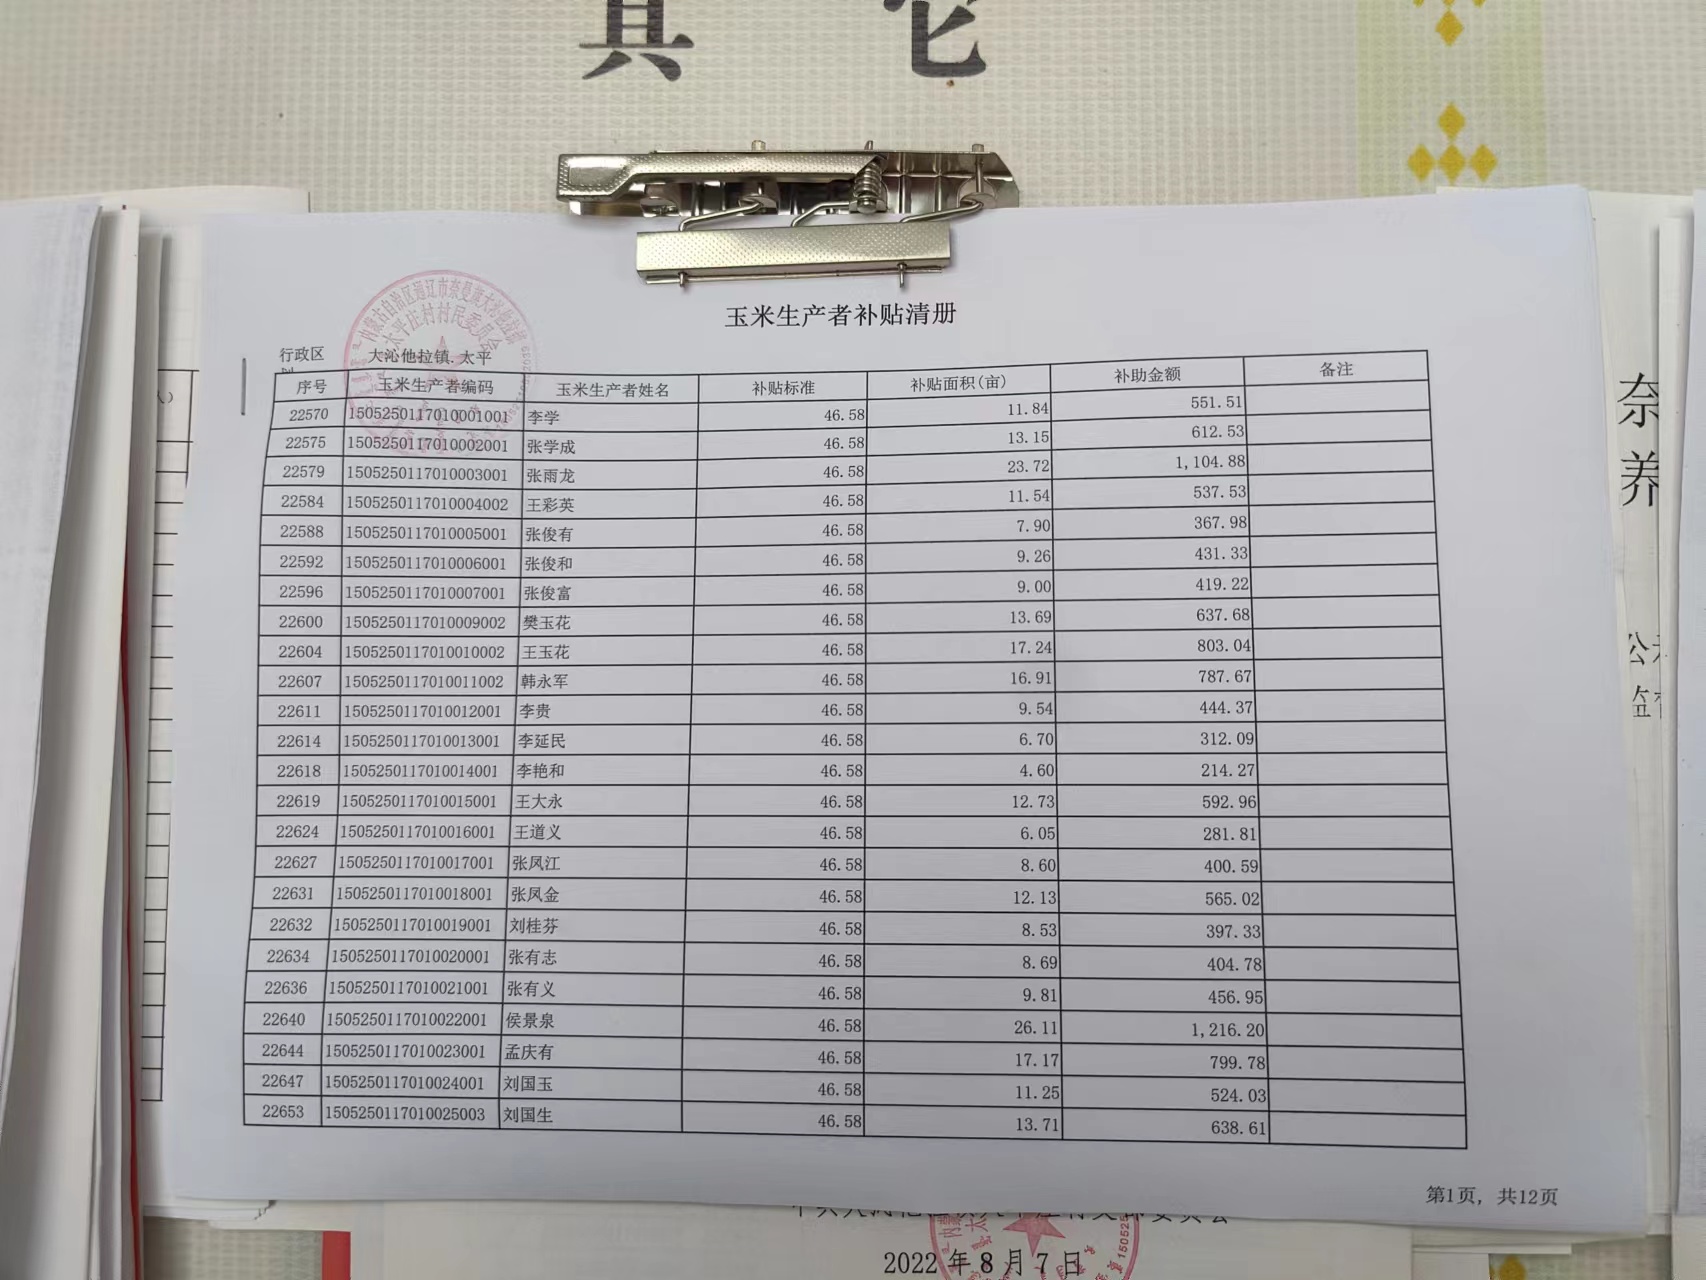 其 它
玉米生产者补贴清册
行政区 大沁他拉镇.太平
序号 玉米生产者编码 玉米生产者姓名 补贴标准 补贴面积(亩) 补助金额 备注
22570 1505250117010001001 李学 46.58 11.84 551.51
22575 1505250117010002001 张学成 46.58 13.15 612.53
22579 1505250117010003001 张雨龙 46.58 23.72 1,104.88
22584 1505250117010004002 王彩英 46.58 11.54 537.53
22588 1505250117010005001 张俊有 46.58 7.90 367.98
22592 1505250117010006001 张俊和 46.58 9.26 431.33
22596 1505250117010007001 张俊富 46.58 9.00 419.22
22600 1505250117010009002 樊玉花 46.58 13.69 637.68
22604 1505250117010010002 王玉花 46.58 17.24 803.04
22607 1505250117010011002 韩永军 46.58 16.91 787.67
22611 1505250117010012001 李贵 46.58 9.54 444.37
22614 1505250117010013001 李延民 46.58 6.70 312.09
22618 1505250117010014001 李艳和 46.58 4.60 214.27
22619 1505250117010015001 王大永 46.58 12.73 592.96
22624 1505250117010016001 王道义 46.58 6.05 281.81
22627 1505250117010017001 张凤江 46.58 8.60 400.59
22631 1505250117010018001 张凤金 46.58 12.13 565.02
22632 1505250117010019001 刘桂芬 46.58 8.53 397.33
22634 1505250117010020001 张有志 46.58 8.69 404.78
22636 1505250117010021001 张有义 46.58 9.81 456.95
22640 1505250117010022001 侯景泉 46.58 26.11 1,216.20
22644 1505250117010023001 孟庆有 46.58 17.17 799.78
22647 1505250117010024001 刘国玉 46.58 11.25 524.03
22653 1505250117010025003 刘国生 46.58 13.71 638.61
第1页, 共12页
内蒙古自治区通辽市奈曼旗大沁他拉镇
太平庄村村民委员会
奈
养
公
监
2022年8月7日